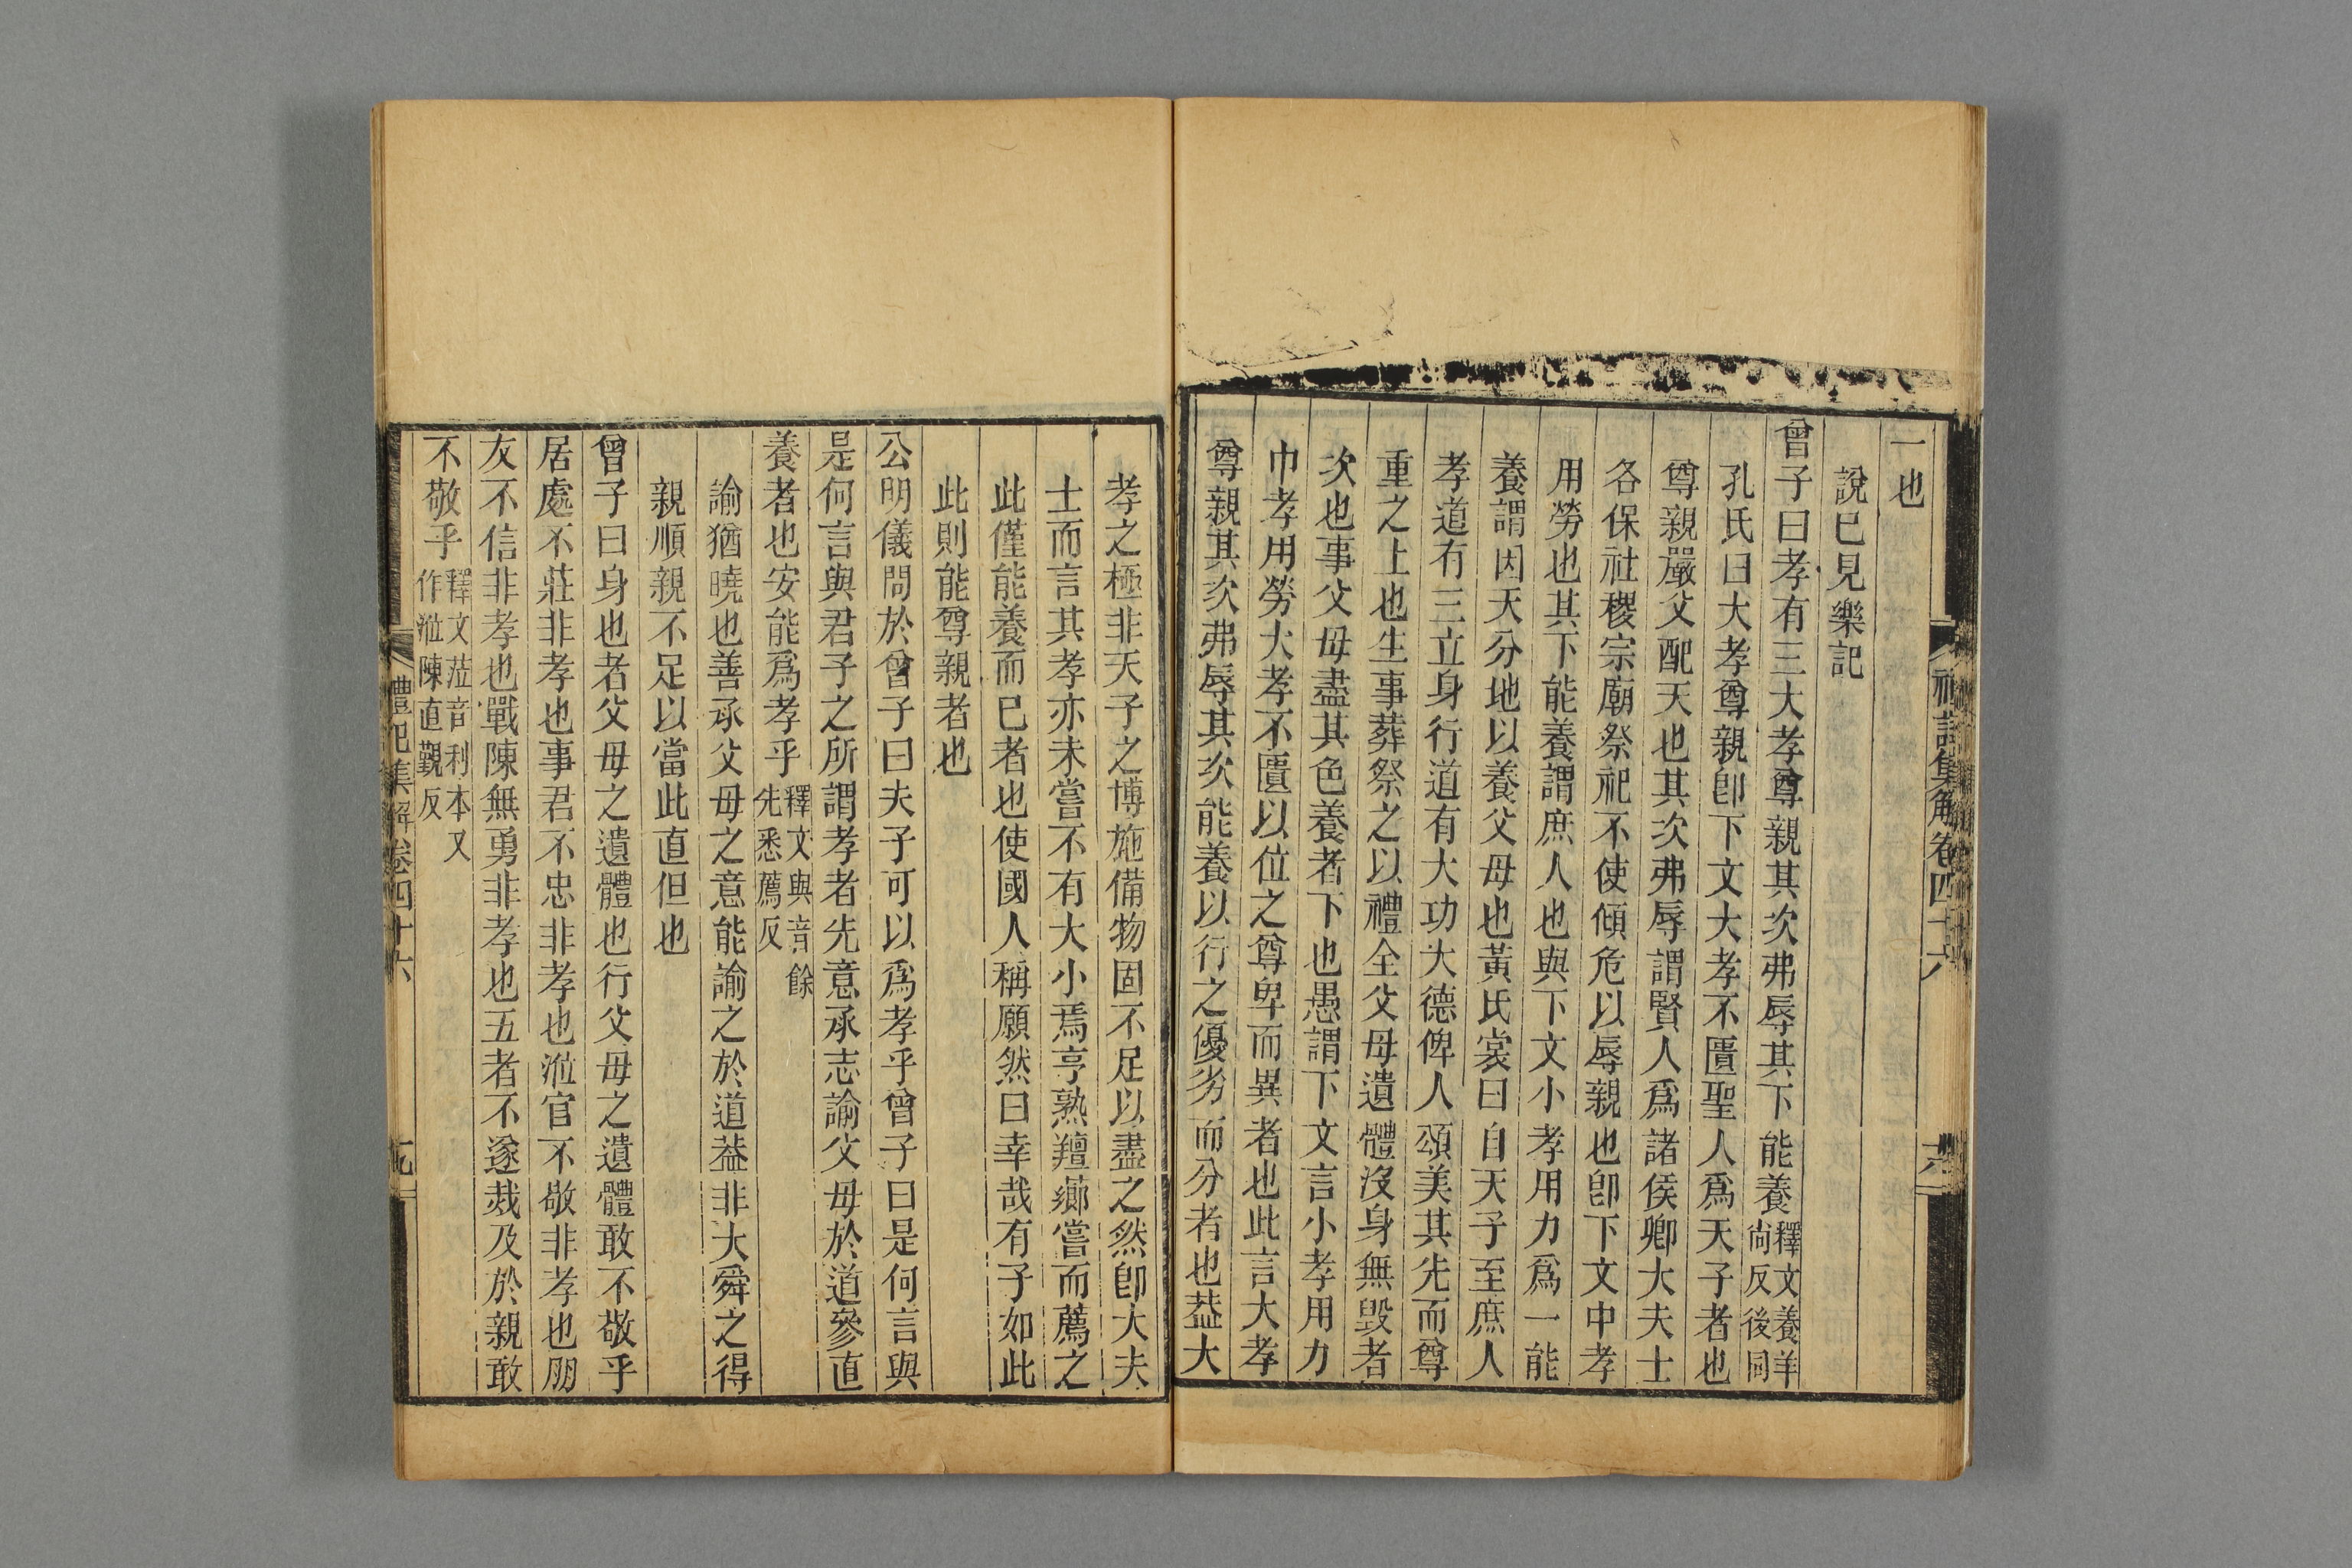 一也
說已見樂記
曾子曰孝有三大孝尊親其次弗辱其下能養釋文養羊尙反後同
孔氏曰大孝尊親卽下文大孝不匱聖人爲天子者也
尊親嚴父配天也其次弗辱謂賢人爲諸侯卿大夫士
各保社稷宗廟祭祀不使傾危以辱親也卽下文中孝
用勞也其下能養謂庶人也與下文小孝用力爲一能
養謂因天分地以養父母也黃氏裳曰自天子至庶人
孝道有三立身行道有大功大德俾人頌美其先而尊
重之上也生事葬祭之以禮全父母遺體沒身無毀者
次也事父母盡其色養者下也愚謂下文言小孝用力
中孝用勞大孝不匱以位之尊卑而異者也此言大孝
尊親其次弗辱其次能養以行之優劣而分者也葢大
孝之極非天子之博施備物固不足以盡之然卽大夫
士而言其孝亦未嘗不有大小焉亨熟羶薌嘗而薦之
此僅能養而已者也使國人稱願然曰幸哉有子如此
此則能尊親者也
公明儀問於曾子曰夫子可以爲孝乎曾子曰是何言與
是何言與君子之所謂孝者先意承志諭父母於道參直
養者也安能爲孝乎釋文與音餘先悉薦反
諭猶曉也善承父母之意能諭之於道葢非大舜之得
親順親不足以當此直但也
曾子曰身也者父母之遺體也行父母之遺體敢不敬乎
居處不莊非孝也事君不忠非孝也涖官不敬非孝也朋
友不信非孝也戰陳無勇非孝也五者不遂烖及於親敢
不敬乎釋文蒞音利本又作涖陳直觀反
禮記集解卷四十六